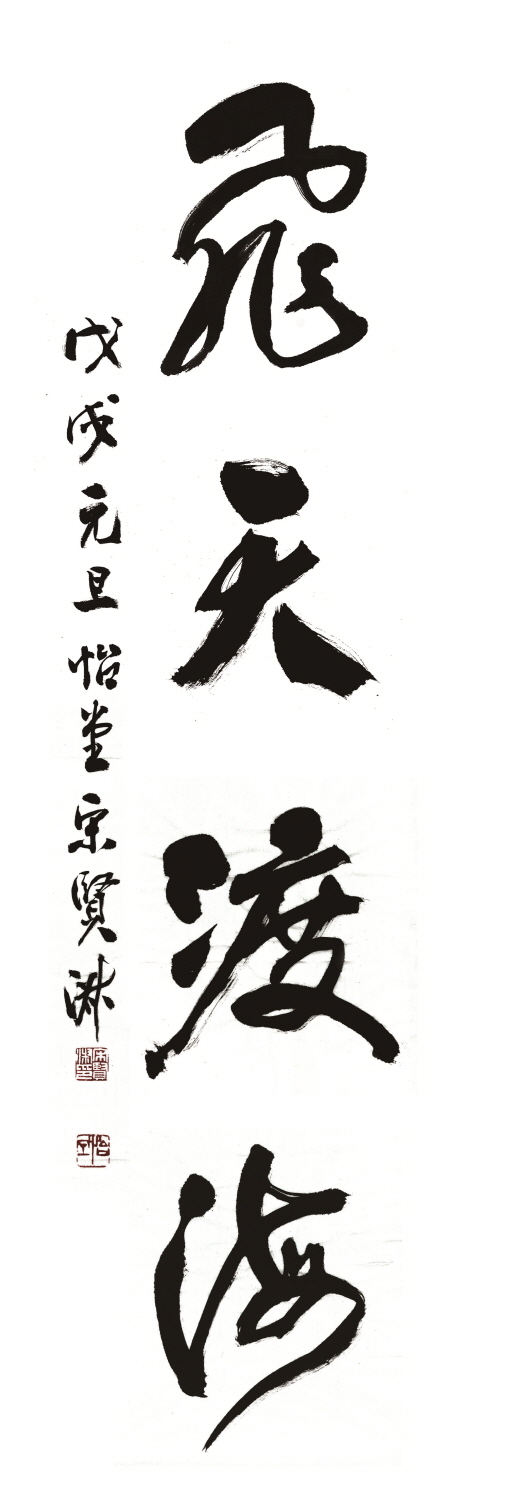 飛天渡海
戊戌元旦怡堂宗賢淋